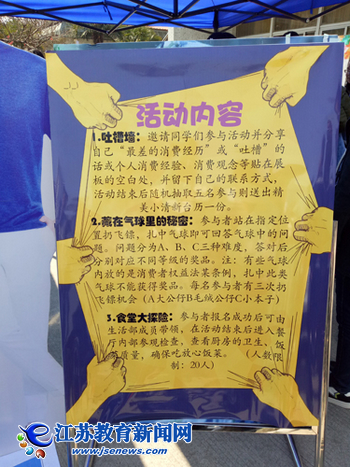 活动内容
1.吐槽墙：邀请同学们参与活动并分享
自己“最差的消费经历”或“吐槽”的
话或个人消费经验、消费观念等贴在展
板的空白处，并留下自己的联系方式，
活动结束后随机抽取五名参与则送出精
美小清新台历一份。
2.藏在气球里的秘密：参与者站在指定位
置扔飞镖，扎中气球即可回答气球中的问
题。问题分为A、B、C三种难度，答对后
分别对应不同等级的奖品。注：有些气球
内放的是消费者权益法某条例，扎中此类
气球不能获得奖品。每名参与者有三次扔
飞镖机会（A大公仔B毛绒公仔C小本子）
3.食堂大探险：参与者报名成功后可由
生活部成员带领，在活动结束后进入餐
厅内部参观检查，查看厨房的卫生、饭
质量，确保吃放心饭菜。（人数限
制：20人）
江苏教育新闻网
www.jsenews.com